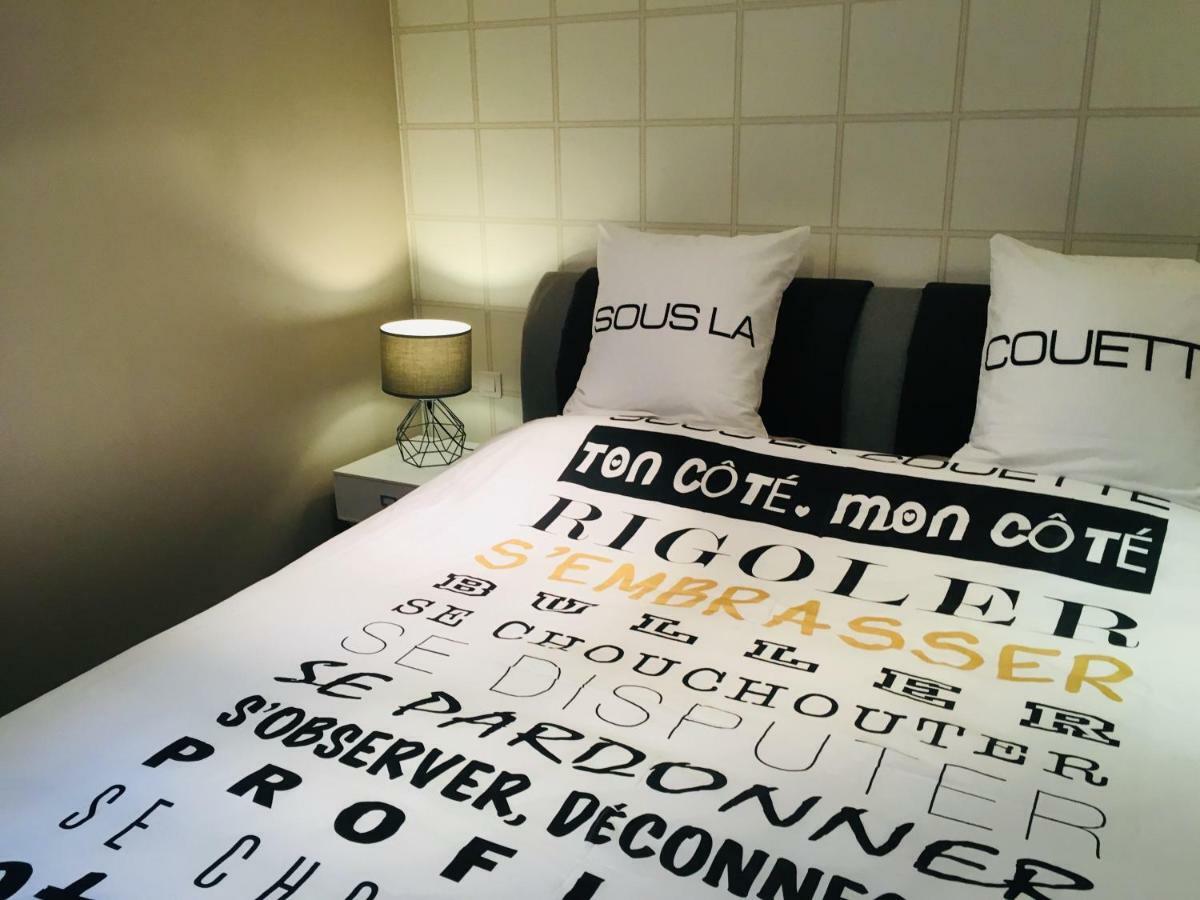 SOUS LA
COUETT
SOUS LA COUETTE
TON CÔTÉ. MON CÔTÉ
RIGOLER
S'EMBRASSER
BULLER
SE CHOUCHOUTER
SE DISPUTER
SE PARDONNER
S'OBSERVER, DÉCONNE
PROFI
SE CHO